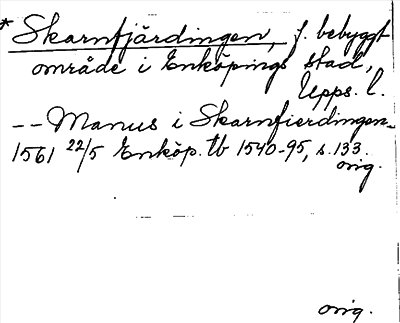 * Skarnfjärdingen, f. bebyggt
område i Enköpings stad,
Upps. l.
-- Manus i Skarnfierdingen
1561 22/5 Enköp. tb 1540-95, s. 133.
orig.
orig.